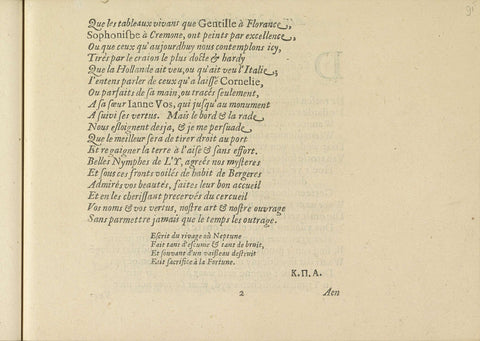 91
Que les tableaux vivans que Gentille à Florance,
Sophonisbe à Cremone, ont peints par excellence,
Ou que ceux qu'aujourdhuy nous contemplons icy,
Tirés par le craion le plus docte & hardy
Que la Hollande ait veu, ou qu'ait veu l'Italie;
I'entens parler de ceux qu'a laissé Cornelie,
Ou parfaits de sa main, ou tracés seulement,
A sa sœur Ianne Vos, qui jusqu'au monument
A suivi ses vertus. Mais le bord & la rade
Nous esloignent desja, & je me persuade,
Que le meilleur sera de tirer droit au port
Et regaigner la terre à l'aise & sans effort.
Belles Nymphes de L'Y, agreés nos mysteres
Et sous ces fronts voilés de habit de Bergeres
Admirés vos beautés, faites leur bon accueil
Et en les cherissant preservés du cercueil
Vos noms & vos vertus, nostre art & nostre ouvrage
Sans parmettre jamais que le temps les outrage.
Escrit du rivage où Neptune
Fait tant d'escume & tant de bruit,
Et souvant d'un vaisseau destruit
Fait sacrifice à la Fortune.
K.Π.A.
2 Aen